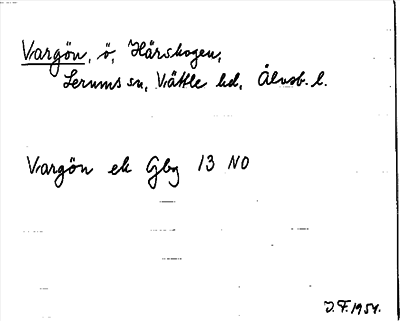 Vargön, ö, Härskogen,
Lerums sn, Vättle hd, Älvsb. l.
Vargön ek Gbg 13 NO
J.F. 1954.